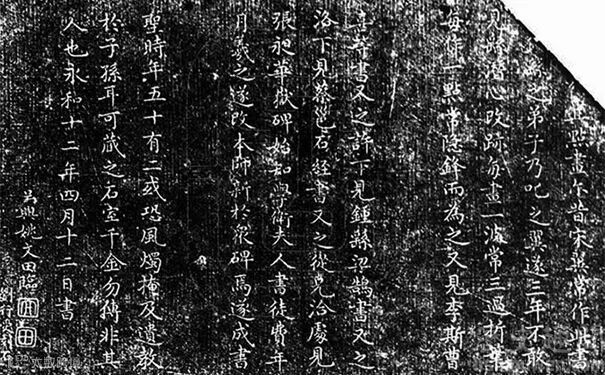 點畫尓昔宋翼常作此書
之弟子乃叱之翼遂三年不敢
見繇潛心改跡每畫一波常三過折筆
每作一點常隱鋒而為之又見李斯曹
喜等書又之許下見鍾繇梁鵠書又之
洛下見蔡邕石經書又之從兄洽處見
張昶華嶽碑始知學衛夫人書徒費年
月羲之遂改本師新於眾碑焉遂成書
聖時年五十有二或恐風燭掩及遺教
於子孫耳可藏之石室千金勿傳非其
人也永和十二年四月十二日書
吳興姚文田臨